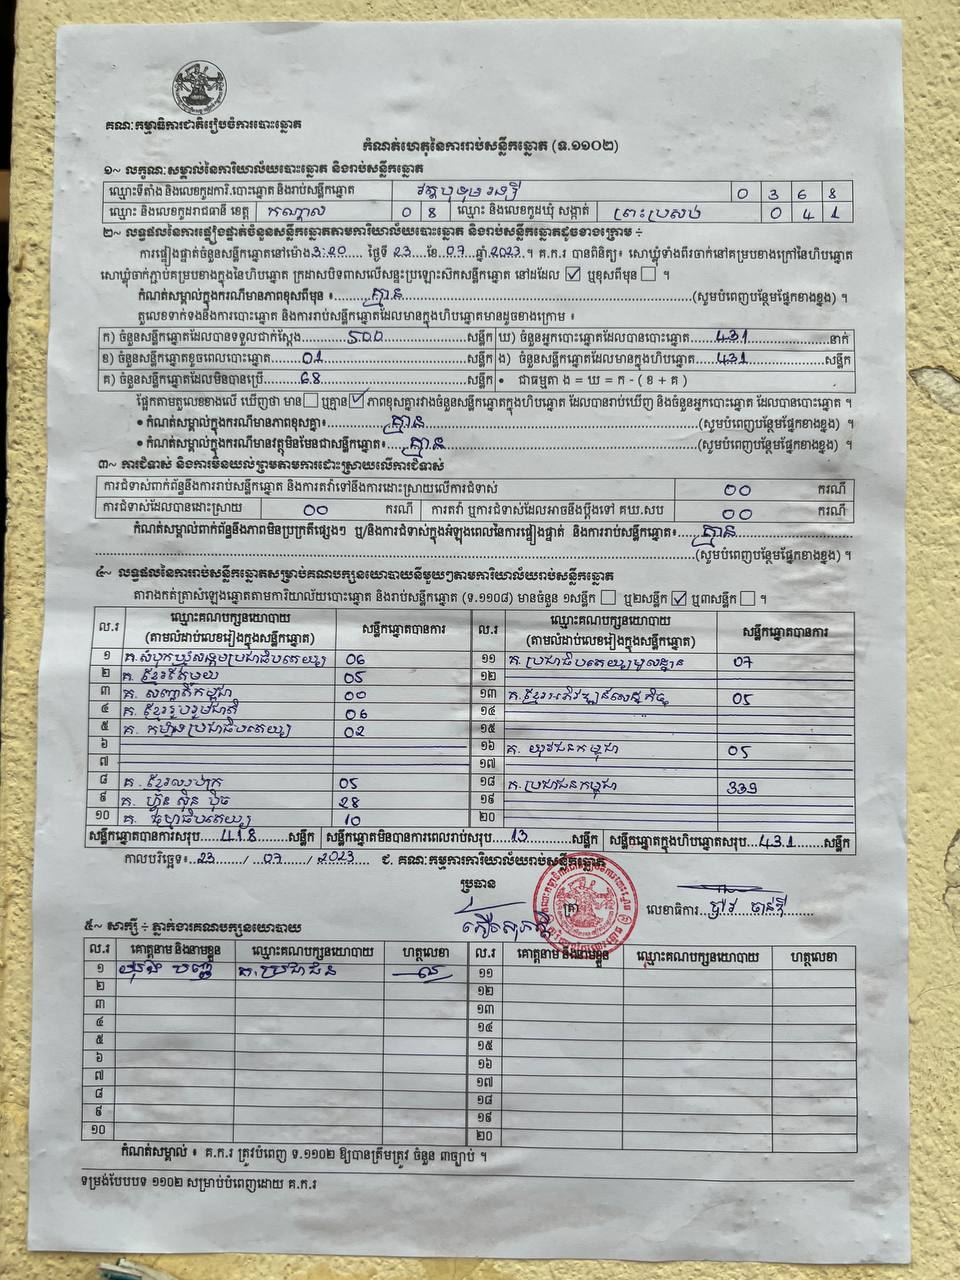 គណៈកម្មាធិការជាតិរៀបចំការបោះឆ្នោត
កំណត់ហេតុនៃការរាប់សន្លឹកឆ្នោត (ទ.១១០២)
១~ លក្ខណៈសម្គាល់នៃការិយាល័យបោះឆ្នោត និងរាប់សន្លឹកឆ្នោត
ឈ្មោះទីតាំង និងលេខកូដការិ.បោះឆ្នោត និងរាប់សន្លឹកឆ្នោត វត្តបុទុមរង្សី 0 3 6 8
ឈ្មោះ និងលេខកូដរាជធានី ខេត្ត កណ្តាល 0 8 ឈ្មោះ និងលេខកូដឃុំ សង្កាត់ ព្រះប្រសប់ 0 4 1
២~ លទ្ធផលនៃការផ្ទៀងផ្ទាត់ចំនួនសន្លឹកឆ្នោតតាមការិយាល័យបោះឆ្នោត និងរាប់សន្លឹកឆ្នោតដូចខាងក្រោម ÷
ការផ្ទៀងផ្ទាត់ចំនួនសន្លឹកឆ្នោតនៅម៉ោង 3:20 ថ្ងៃទី 23 ខែ 07 ឆ្នាំ 2023 ។ គ.ក.រ បានពិនិត្យ៖ សោឃ្លុំទាំងពីរចាក់នៅគម្របខាងក្រៅនៃហិបឆ្នោត
សោឃ្លុំចាក់ភ្ជាប់គម្របខាងក្នុងនៃហិបឆ្នោត ក្រដាសបិទពាសលើសន្ទះប្រឡោះស៊កសន្លឹកឆ្នោត នៅដដែល ☑ ឬខុសពីមុន ☐ ។
កំណត់សម្គាល់ក្នុងករណីមានភាពខុសពីមុន ៖ គ្មាន (សូមបំពេញបន្ថែមផ្នែកខាងខ្នង) ។
តួលេខទាក់ទងនឹងការបោះឆ្នោត និងការរាប់សន្លឹកឆ្នោតដែលមានក្នុងហិបឆ្នោតមានដូចខាងក្រោម ៖
ក) ចំនួនសន្លឹកឆ្នោតដែលបានទទួលជាក់ស្តែង 500 សន្លឹក ឃ) ចំនួនអ្នកបោះឆ្នោតដែលបានបោះឆ្នោត 431 នាក់
ខ) ចំនួនសន្លឹកឆ្នោតខូចពេលបោះឆ្នោត 01 សន្លឹក ង) ចំនួនសន្លឹកឆ្នោតដែលមានក្នុងហិបឆ្នោត 431 សន្លឹក
គ) ចំនួនសន្លឹកឆ្នោតដែលមិនបានប្រើ 68 សន្លឹក • ជាធម្មតា ង = ឃ = ក - ( ខ + គ )
ផ្អែកតាមតួលេខខាងលើ ឃើញថា មាន ☐ ឬគ្មាន ☑ ភាពខុសគ្នារវាងចំនួនសន្លឹកឆ្នោតក្នុងហិបឆ្នោត ដែលបានរាប់ឃើញ និងចំនួនអ្នកបោះឆ្នោត ដែលបានបោះឆ្នោត ។
• កំណត់សម្គាល់ក្នុងករណីមានភាពខុសគ្នា៖ គ្មាន (សូមបំពេញបន្ថែមផ្នែកខាងខ្នង) ។
• កំណត់សម្គាល់ក្នុងករណីមានវត្ថុមិនមែនជាសន្លឹកឆ្នោត៖ គ្មាន (សូមបំពេញបន្ថែមផ្នែកខាងខ្នង) ។
៣~ ការជំទាស់ និងការមិនយល់ព្រមតាមការដោះស្រាយលើការជំទាស់
ការជំទាស់ពាក់ព័ន្ធនឹងការរាប់សន្លឹកឆ្នោត និងការតវ៉ាទៅនឹងការដោះស្រាយលើការជំទាស់ 00 ករណី
ការជំទាស់ដែលបានដោះស្រាយ 00 ករណី ការតវ៉ា ឬការជំទាស់ដែលអាចនឹងប្តឹងទៅ គឃ.សប 00 ករណី
កំណត់សម្គាល់ពាក់ព័ន្ធនឹងភាពមិនប្រក្រតីផ្សេងៗ ឬ/និងការជំទាស់ក្នុងអំឡុងពេលនៃការផ្ទៀងផ្ទាត់ និងការរាប់សន្លឹកឆ្នោត៖ គ្មាន
(សូមបំពេញបន្ថែមផ្នែកខាងខ្នង) ។
៤~ លទ្ធផលនៃការរាប់សន្លឹកឆ្នោតសម្រាប់គណបក្សនយោបាយនីមួយៗតាមការិយាល័យរាប់សន្លឹកឆ្នោត
តារាងកត់ត្រាសំឡេងឆ្នោតតាមការិយាល័យបោះឆ្នោត និងរាប់សន្លឹកឆ្នោត (ទ.១១០៨) មានចំនួន ១សន្លឹក ☐ ឬ២សន្លឹក ☑ ឬ៣សន្លឹក ☐ ។
ល.រ ឈ្មោះគណបក្សនយោបាយ (តាមលំដាប់លេខរៀងក្នុងសន្លឹកឆ្នោត) សន្លឹកឆ្នោតបានការ ល.រ ឈ្មោះគណបក្សនយោបាយ (តាមលំដាប់លេខរៀងក្នុងសន្លឹកឆ្នោត) សន្លឹកឆ្នោតបានការ
១ គ.សំបុកឃ្មុំសង្គមប្រជាធិបតេយ្យ 06 ១១ គ.ប្រជាធិបតេយ្យមូលដ្ឋាន 07
២ គ.ខ្មែរតែមួយ 05 ១២
៣ គ. សញ្ជាតិកម្ពុជា 00 ១៣ គ.ខ្មែរអភិវឌ្ឍន៍សេដ្ឋកិច្ច 05
៤ គ.ខ្មែររួបរួមជាតិ 06 ១៤
៥ គ. កម្លាំងប្រជាធិបតេយ្យ 02 ១៥
៦ ១៦ គ. យុវជនកម្ពុជា 05
៧ ១៧
៨ គ. ខ្មែរឈប់ក្រ 05 ១៨ គ.ប្រជាជនកម្ពុជា 339
៩ គ. ហ្វ៊ុន ស៊ិន ប៉ិច 28 ១៩
១០ គ. ធម្មាធិបតេយ្យ 10 ២០
សន្លឹកឆ្នោតបានការសរុប 418 សន្លឹក សន្លឹកឆ្នោតមិនបានការពេលរាប់សរុប 13 សន្លឹក សន្លឹកឆ្នោតក្នុងហិបឆ្នោតសរុប 431 សន្លឹក
កាលបរិច្ឆេទ៖ 23 / 07 / 2023 ជ. គណៈកម្មការការិយាល័យរាប់សន្លឹកឆ្នោត
ប្រធាន
ត្រា
លេខាធិការ
៥~ សាក្សី ÷ ភ្នាក់ងារគណបក្សនយោបាយ
ល.រ គោត្តនាម និងនាមខ្លួន ឈ្មោះគណបក្សនយោបាយ ហត្ថលេខា ល.រ គោត្តនាម និងនាមខ្លួន ឈ្មោះគណបក្សនយោបាយ ហត្ថលេខា
១ គ.ប្រជាជន ១១
២ ១២
៣ ១៣
៤ ១៤
៥ ១៥
៦ ១៦
៧ ១៧
៨ ១៨
៩ ១៩
១០ ២០
កំណត់សម្គាល់ ៖ គ.ក.រ ត្រូវបំពេញ ទ.១១០២ ឱ្យបានត្រឹមត្រូវ ចំនួន ៣ច្បាប់ ។
ទម្រង់បែបបទ ១១០២ សម្រាប់បំពេញដោយ គ.ក.រ